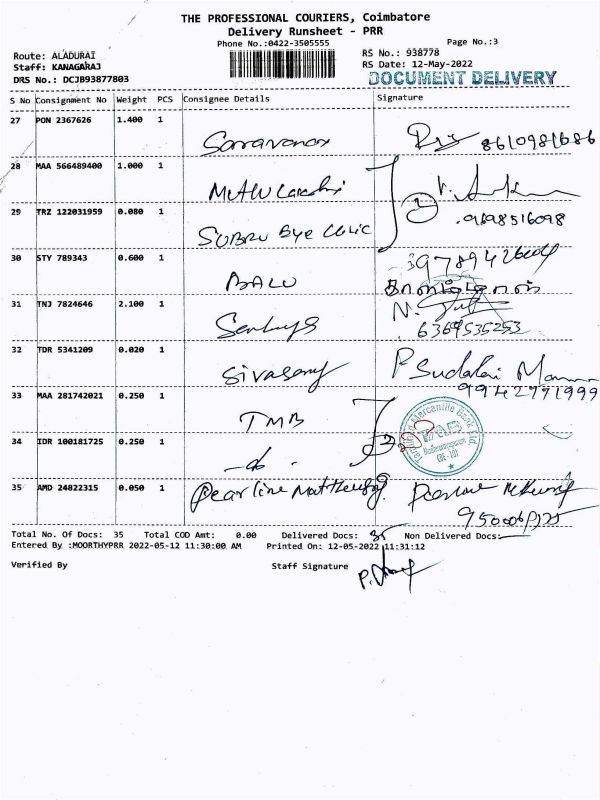 THE PROFESSIONAL COURIERS, Coimbatore
Delivery Runsheet - PRR
Phone No.:0422-3505555
Page No.:3
Route: ALADURAI
RS No.: 938778
Staff: KANAGARAJ
RS Date: 12-May-2022
DRS No.: DCJB93877803
DOCUMENT DELIVERY
S No Consignment No Weight PCS Consignee Details Signature
27 PON 2367626 1.400 1
28 MAA 566489400 1.000 1
29 TRZ 122031959 0.080 1
SUBRU Eye Clinic
30 STY 789343 0.600 1
BALU
31 TNJ 7824646 2.100 1
6369535253
32 TDR 5341209 0.020 1
Sivasamy P Sudalai
9942791999
33 MAA 281742021 0.250 1
TMB
34 IDR 100181725 0.250 1
35 AMD 24822315 0.050 1
Pearline
Total No. Of Docs: 35 Total COD Amt: 0.00 Delivered Docs: 35 Non Delivered Docs:
Entered By :MOORTHYPRR 2022-05-12 11:30:00 AM Printed On: 12-05-2022 11:31:12
Verified By Staff Signature